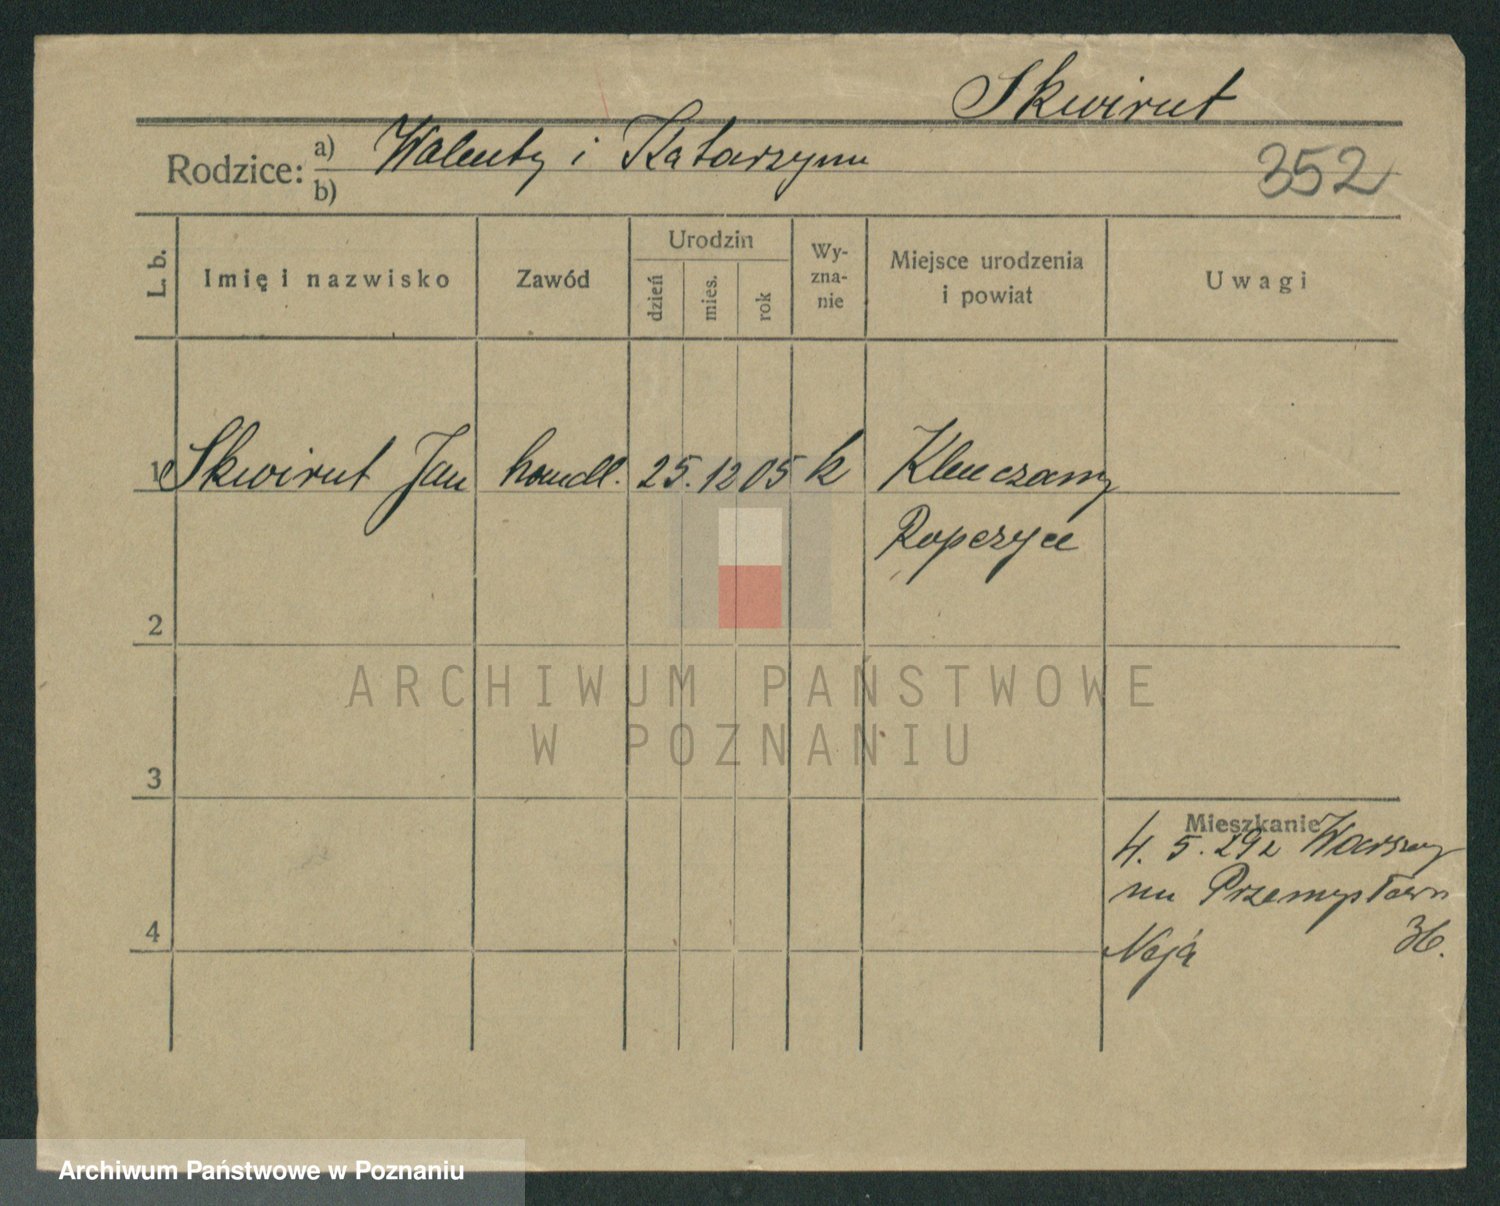 Skwirut
Rodzice: a) Walenty i Katarzyna
b)
352
L. b.
Imię i nazwisko
Zawód
Urodzin
dzień
mies.
rok
Wy-
zna-
nie
Miejsce urodzenia
i powiat
Uwagi
1 Skwirut Jan handl. 25. 12 05 k Klenczany
Ropczyce
2
3
4
Mieszkanie
4. 5. 29 z Warszawy
na Przemysłowa
36.
ARCHIWUM PAŃSTWOWE
W POZNANIU
Archiwum Państwowe w Poznaniu